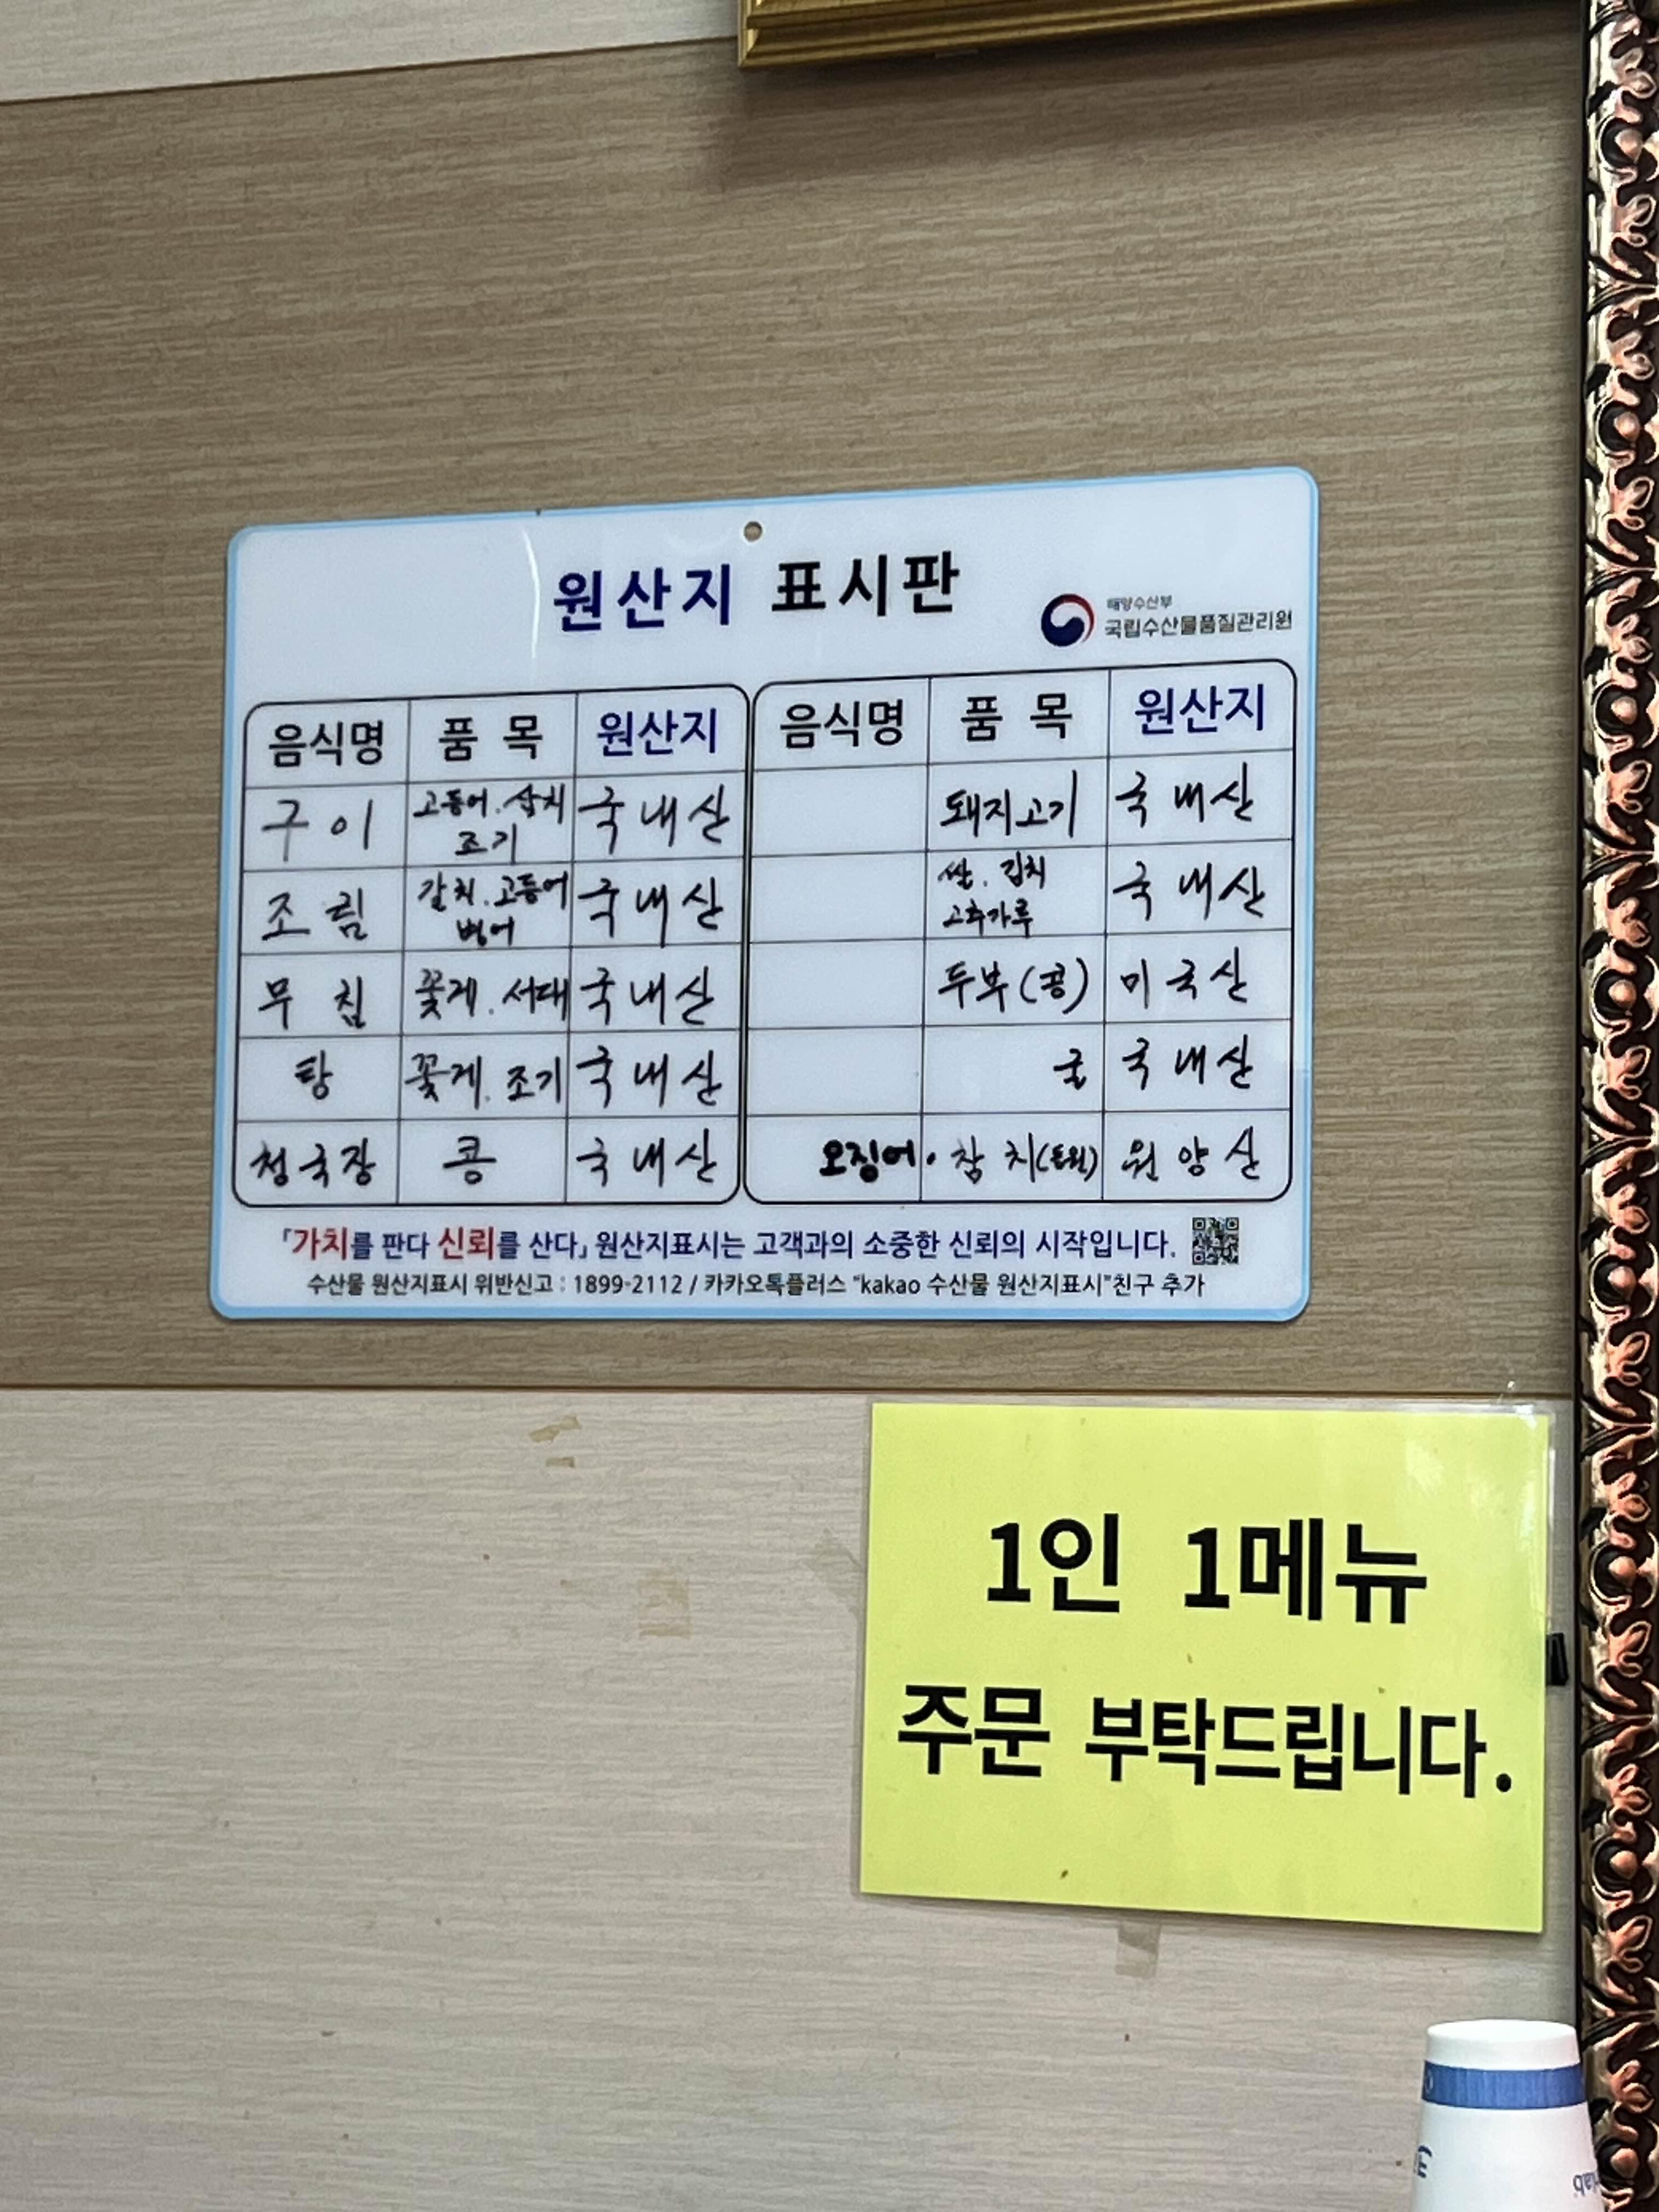 원산지 표시판
해양수산부
국립수산물품질관리원
음식명 품 목 원산지
구이 고등어. 삼치 조기 국내산
조림 갈치. 고등어 병어 국내산
무침 꽃게. 서대 국내산
탕 꽃게. 조기 국내산
청국장 콩 국내산
음식명 품 목 원산지
돼지고기 국내산
쌀. 김치 고추가루 국내산
두부(콩) 미국산
굴 국내산
오징어. 참치(동원) 원양산
「가치를 판다 신뢰를 산다」 원산지표시는 고객과의 소중한 신뢰의 시작입니다.
수산물 원산지표시 위반신고 : 1899-2112 / 카카오톡플러스 "kakao 수산물 원산지표시"친구 추가
1인 1메뉴
주문 부탁드립니다.